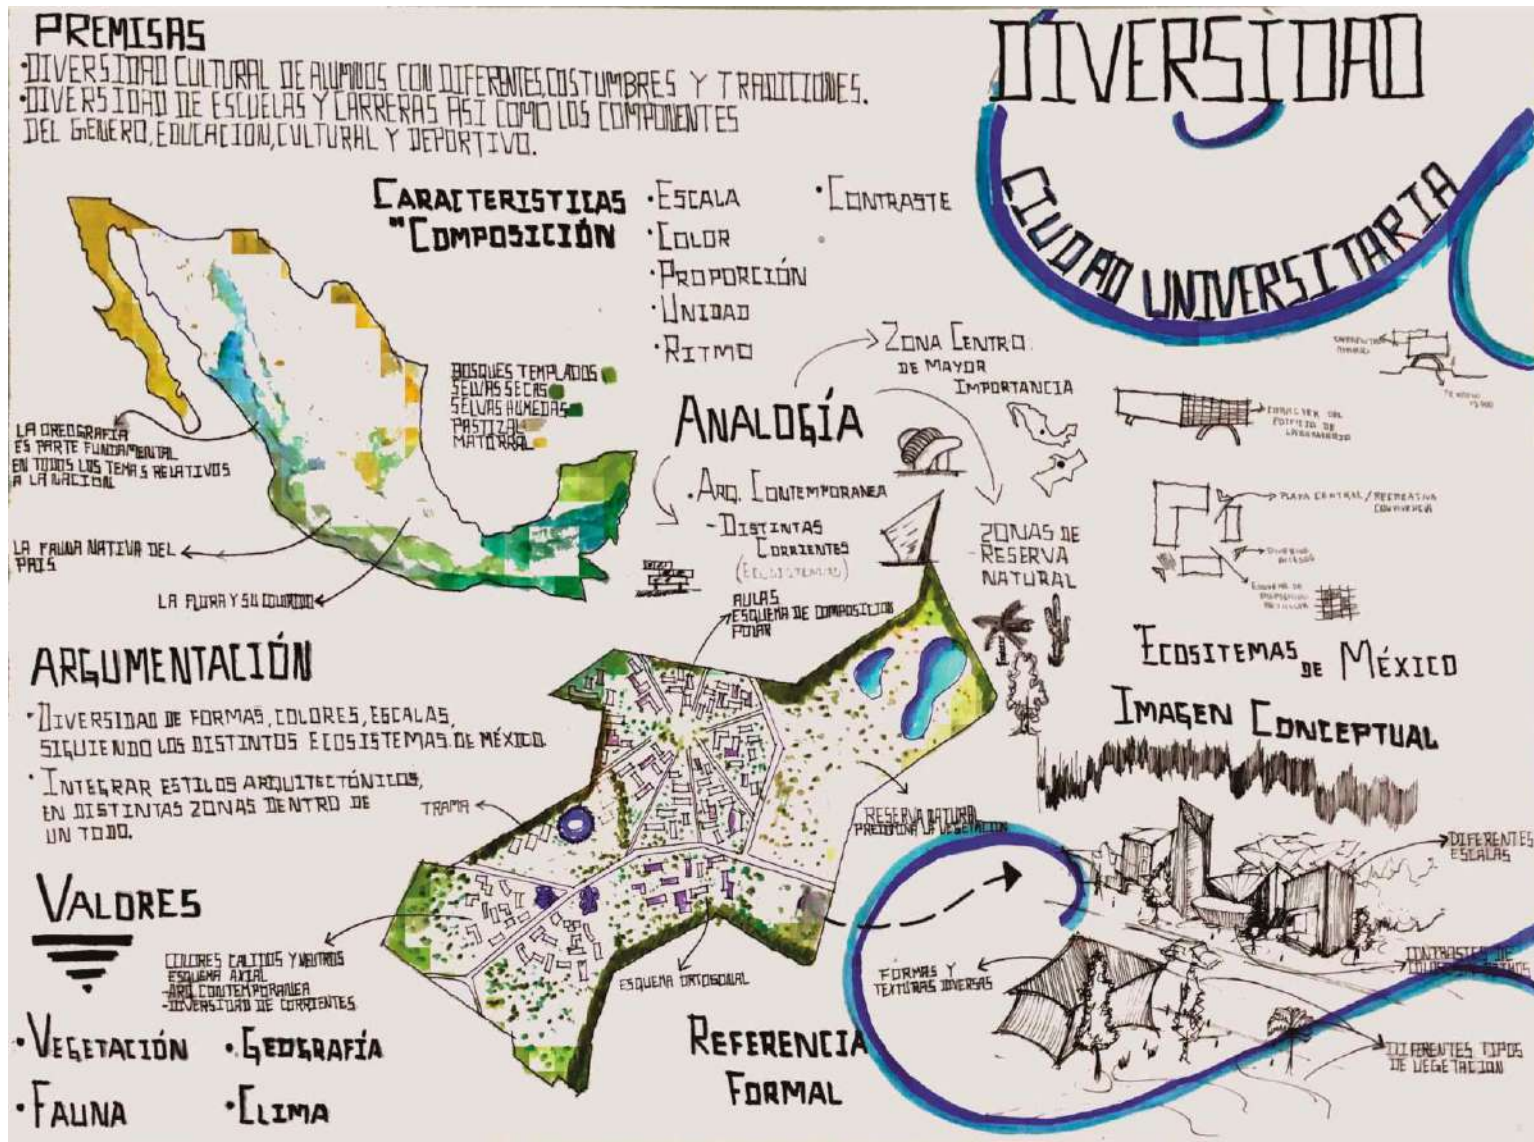 PREMISAS
•DIVERSIDAD CULTURAL DE ALUMNOS CON DIFERENTES COSTUMBRES Y TRADICIONES.
•DIVERSIDAD DE ESCUELAS Y CARRERAS ASI COMO LOS COMPONENTES
DEL GENERO, EDUCACION, CULTURAL Y DEPORTIVO.
DIVERSIDAD
CIUDAD UNIVERSITARIA
CARACTERISTICAS
"COMPOSICIÓN
•ESCALA
•COLOR
•PROPORCIÓN
•UNIDAD
•RITMO
•CONTRASTE
BOSQUES TEMPLADOS
SELVAS SECAS
SELVAS HUMEDAS
PASTIZAL
MATORRAL
LA OREOGRAFIA
ES PARTE FUNDAMENTAL
EN TODOS LOS TEMAS RELATIVOS
A LA NACION
LA FAUNA NATIVA DEL
PAIS
LA FLORA Y SU COLORIDO
ANALOGÍA
ZONA CENTRO
DE MAYOR
IMPORTANCIA
•ARQ. CONTEMPORANEA
-DISTINTAS
CORRIENTES
(ECOSISTEMAS)
ZONAS DE
RESERVA
NATURAL
CARACTER DEL
EDIFICIO DE
PLAZA CENTRAL/RECREATIVA
CONVIVENCIA
ECOSITEMAS DE MÉXICO
IMAGEN CONCEPTUAL
AULAS
ESQUEMA DE COMPOSICION
POLAR
ARGUMENTACIÓN
•DIVERSIDAD DE FORMAS, COLORES, ESCALAS,
SIGUIENDO LOS DISTINTOS ECOSISTEMAS DE MÉXICO.
•INTEGRAR ESTILOS ARQUITECTÓNICOS,
EN DISTINTAS ZONAS DENTRO DE
UN TODO.
TRAMA
RESERVA NATURAL
PREDOMINA LA VEGETACION
DIFERENTES
ESCALAS
VALORES
COLORES CALIDOS Y NEUTROS
ESQUEMA AXIAL
-ARQ. CONTEMPORANEA
-DIVERSIDAD DE CORRIENTES
ESQUEMA ORTOGONAL
FORMAS Y
TEXTURAS DIVERSAS
CONTRASTES DE
DIFERENTES TIPOS
DE VEGETACION
•VEGETACIÓN
•GEOGRAFÍA
•FAUNA
•CLIMA
REFERENCIA
FORMAL